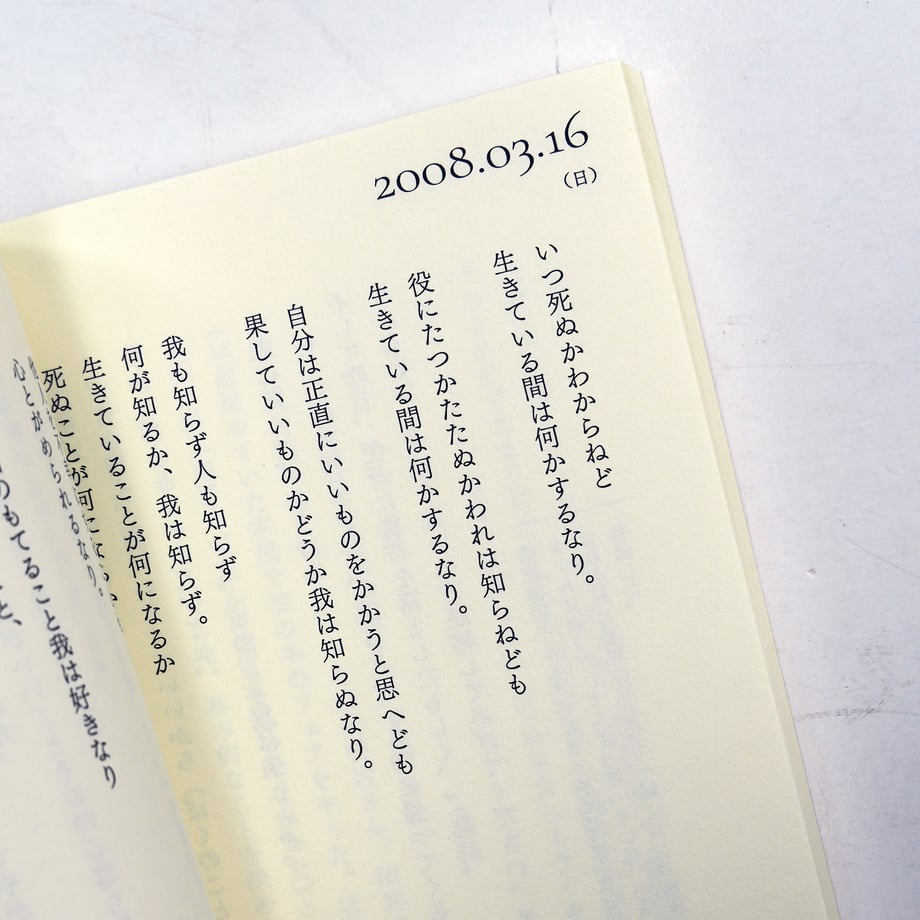 2008.03.16
（日）
いつ死ぬかわからねど
生きている間は何かするなり。
役にたつかたたぬかわれは知らねども
生きている間は何かするなり。
自分は正直にいいものをかかうと思へども
果していいものかどうか我は知らぬなり。
我も知らず人も知らず
何が知るか、我は知らず。
生きていることが何になるか
死ぬことが何に
心とがめられるなり。
のもてること我は好きなり
と、